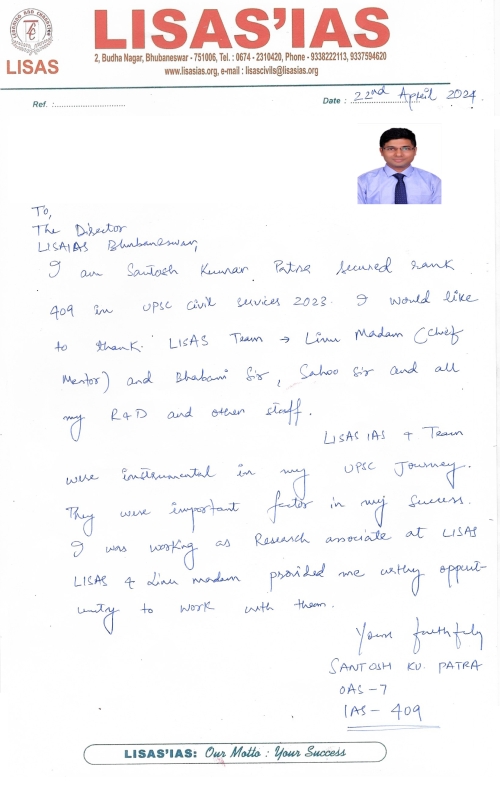 LISAS'IAS
LISAS
2, Budha Nagar, Bhubaneswar - 751006, Tel. : 0674 - 2310420, Phone - 9338222113, 9337594620
www.lisasias.org, e-mail : lisascivils@lisasias.org
Ref. :
Date : 22nd April 2024.
To,
The Director
LISAIAS Bhubaneswar,
I am Santosh Kumar Patra secured rank
409 in UPSC Civil Services 2023. I would like
to thank LISAS Team → Linu Madam (Chief
Mentor) and Bhabani Sir, Sahoo Sir and all
my R&D and other staff.
LISAS IAS & Team
were instrumental in my UPSC Journey.
They were important factor in my success.
I was working as Research associate at LISAS
LISAS & Linu madam provided me opport-
unity to work with them.
Yours faithfuly
SANTOSH KU. PATRA
OAS - 7
IAS - 409
LISAS'IAS: Our Motto : Your Success